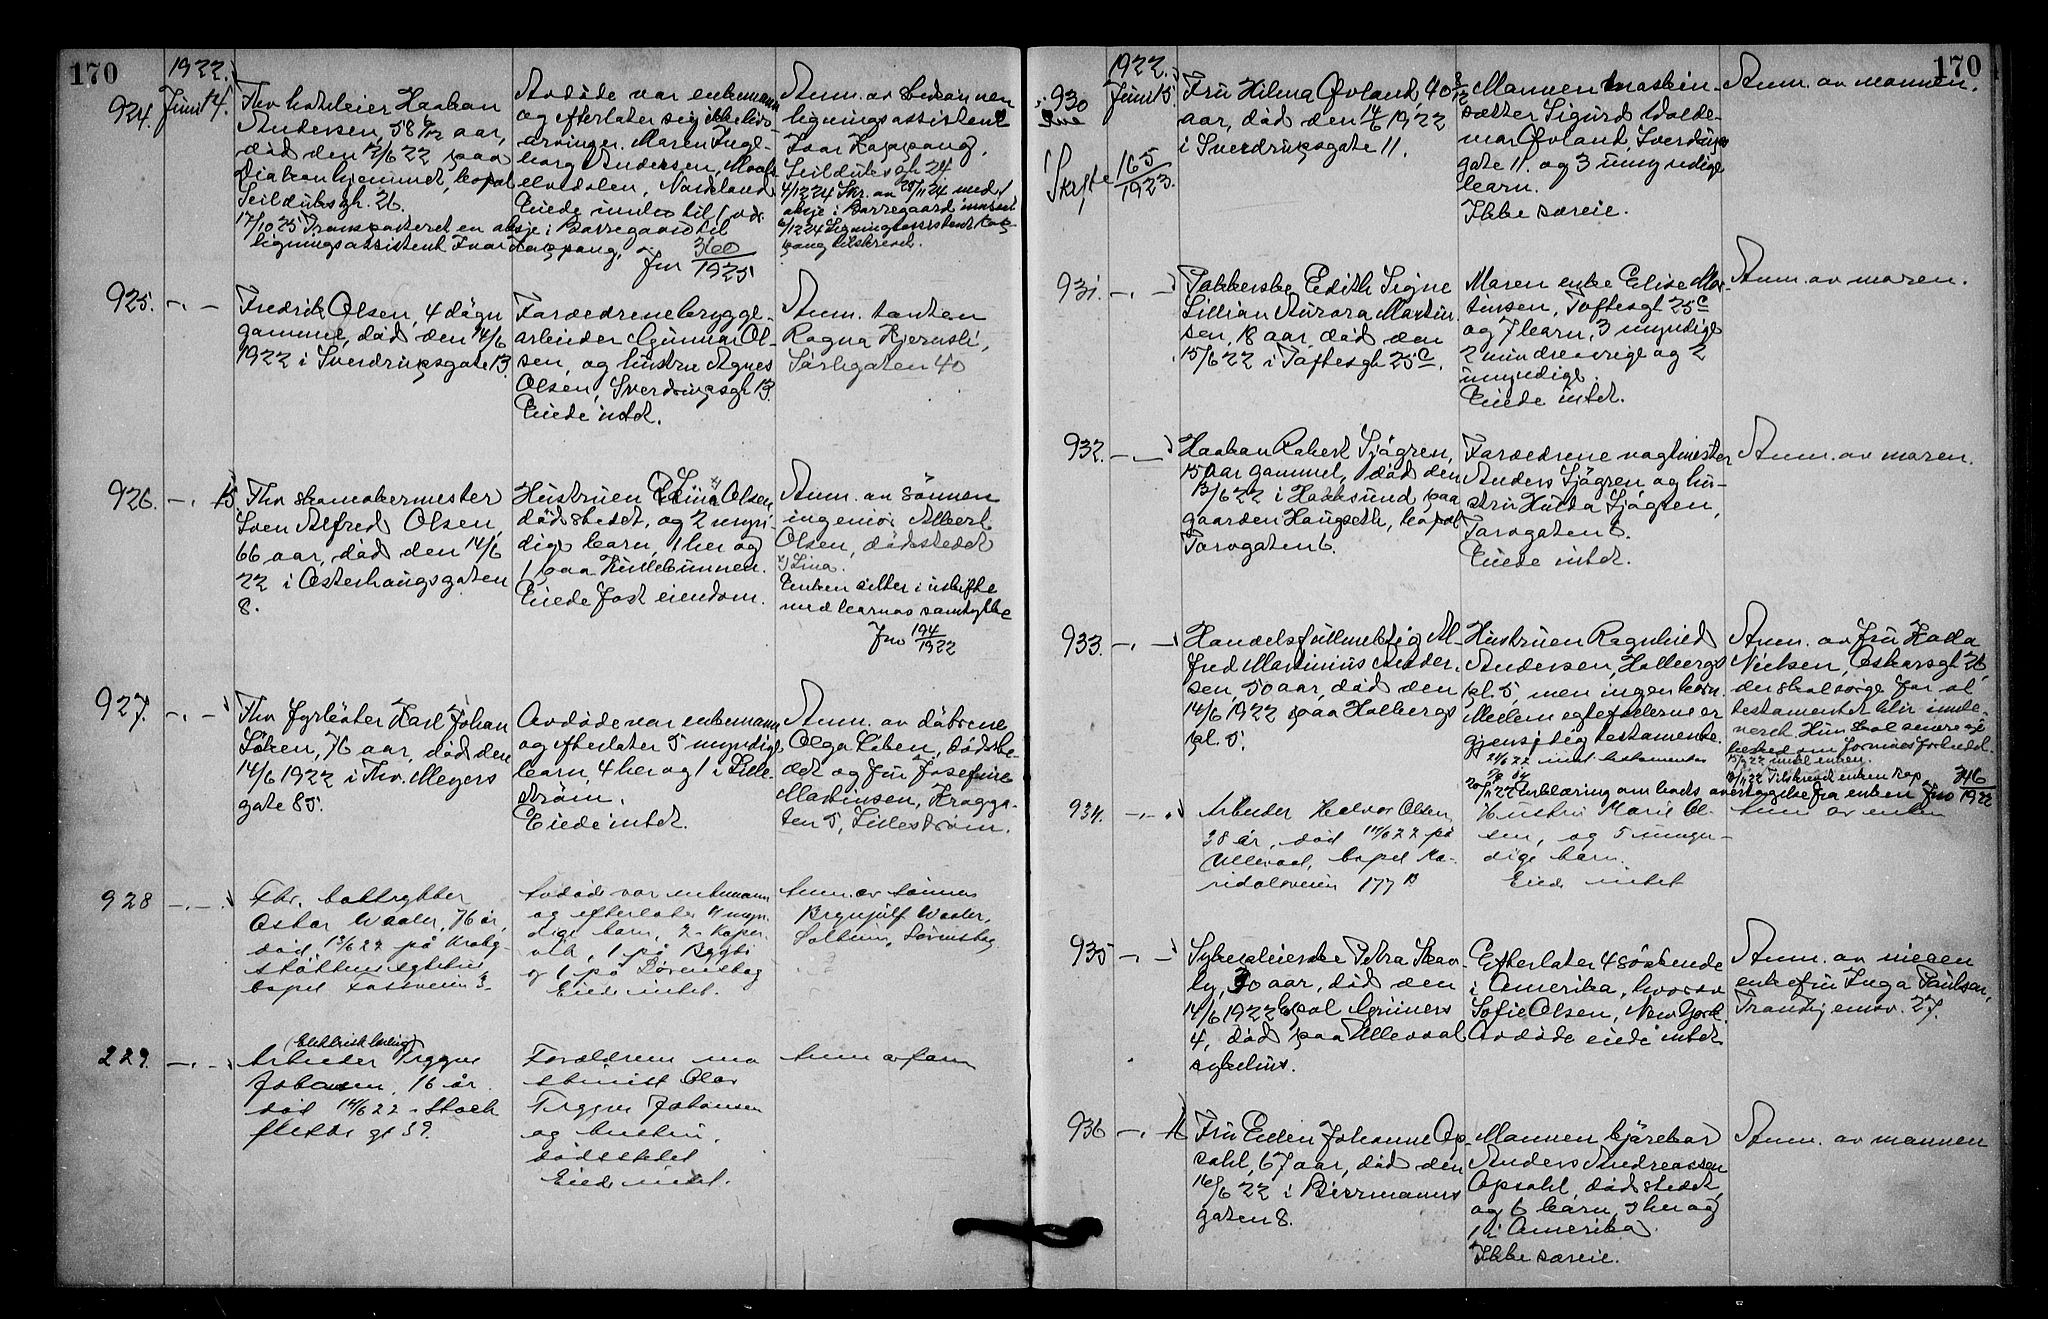 170
1922.
924. Juni 14.
Fhv hotleier Haakon
Andersen, 58 6/12 aar,
død den 12/6 22 paa
Diakonhjemmet, bopæl
Seilduksgt. 26.
17/10 25 Transporteret en aksje i Borregaard til
ligningsassistent Ivar Kappang.
Jnr 360/1925
Avdøde var enkemann
og efterlater sig ikke livs-
arvinger. Maren Inge-
borg Andersen,
Nordland
Eiede indtil
Anm. av
ligningsassistent
Ivar Kappang,
Seilduksgt 24.
4/12 24 Skr. av 25/11 24 med 1
aksje i Borregaard
6/12 24 Ligningsassistent Kap-
pang tilskrevet.
925. -"-
Fredrik Olsen, 4 døgn
gammel, død den 14/6
1922 i Sverdrupsgate 13.
Forældrene brygge-
arbeider Gunnar Ol-
sen, og hustru Agnes
Olsen, Sverdrupsgt 13.
Eiede intet.
Anm. tanten
Ragna Kjernsli,
Sarsgaten 40
926. -"- 15.
Fhv skomakermester
Sven Alfred Olsen,
66 aar, død den 14/6
22 i Osterhausgaten
8.
Hustruen Lina Olsen,
dødsstedet, og 2 myn-
dige barn, 1 her og
1 paa Kullebunnen.
Eiede fast eiendom.
Anm. av sønnen
ingeniør Albert
Olsen, dødsstedet
Lina.
Enken sitter i uskifte
med barnas samtykke
Jnr 194/1922
927. -"-
Fhv fyrbøter Karl Johan
Liben, 76 aar, død den
14/6 1922 i Thv. Meyers
gate 85.
Avdøde var enkemann
og efterlater 5 myndige
barn, 4 her og 1 i Lille-
strøm.
Eiede intet.
Anm. av døtrene
Olga Liben, dødsste-
det og fru Josefine
Martinsen, Kragga-
ten 5, Lillestrøm.
928 -"-
Fhv. boktrykker
Oskar Waaler, 76 år,
død 13/6 22 på Krohg-
støttens sykehus
bopel
Avdøde var enkemann
og efterlater 4 myn-
dige barn, 2
vik, 1 på Bygdø
og 1 på Lørenskog
Eiede intet.
Anm. av sønnen
Brynjulf Waaler,
Solheim, Lørenskog
229. -"-
(Elektrisk lærling)
Arbeider Trygve
Johansen, 16 år
død 14/6 22 i Stock
fleths gt 39.
Foreldrene ma-
skinist Olav
Trygve Johansen
og hustru,
dødsstedet
Eiede intet.
Anm av faren
170
1922.
930 Juni 15.
Skifte 165/1923.
Fru Hilma Øvland, 40 8/12
aar, død den 14/6 1922
i Sverdrupsgate 11.
Mannen maskin-
sætter Sigurd Wolde-
mar Øvland, Sverdrups
gate 11. og 3 umyndige
barn.
Ikke særeie.
Anm. av mannen.
931. -"-
Pakkerske Edith Signe
Lillian Aurora Martin-
sen, 18 aar, død den
15/6 22 i Toftesgt 25c.
Moren enke Elise Mar-
tinsen, Toftesgt 25c
og 7 barn, 3 myndige
2 mindreaarige og 2
umyndige.
Eiede intet.
Anm. av moren.
932. -"-
Haakon Robert Sjögren,
15 aar gammel, død den
13/6 22 i Hokksund paa
gaarden Haugseth, bopæl
Torvgaten 6.
Forældrene vagtmester
Anders Sjögren og hu-
stru Hulda Sjögren,
Torvgaten 6.
Eiede intet.
Anm. av moren.
933. -"-
Handelsfullmektig Al-
fred Martinius Ander-
sen, 50 aar, død den
14/6 1922 paa Holbergs
pl. 5.
Hustruen Ragnhild
Andersen, Holbergs
pl. 5, men ingen barn.
Mellem egtefællerne er
gjensidig testamente.
Anm. av fru Halla
Nielsen, Oskarsgt 26
der skal sørge for at
testamentet blir inde-
veret. Hun skal senere gi
besked om formuesforhold.
Erklæring om boets overtagelse fra enken Jnr 346/1922
934. -"-
Arbeider Halvor Olsen
38 år, død 14/6 22 på
Ullevaal, bopel Ma-
ridalsveien 177 B
Hustru Marie Ol-
sen, og 5 umyn-
dige barn.
Eiede intet
Anm av enken
935 -"-
Sykepleierske Petra Skav-
ly, 30 aar, død den
14/6 1922 bopæl Grüners
4, død paa Ullevaal
sykehus.
Efterlater 4 søskende
i Amerika, hvorav
Sofie Olsen, New York.
Avdøde eiede intet
Anm. av niesen
enkefru Inga Paulsen,
Frandtjensv. 27.
936 -"- 16
Fru Elen Johanne Op-
sahl, 67 aar, død den
16/6 22 i Biermanns
gaten 8.
Mannen kjørekar
Anders Andreassen
Opsahl, dødsstedet,
og 6 barn, 5 her og
1 i Amerika.
Ikke særeie.
Anm. av mannen